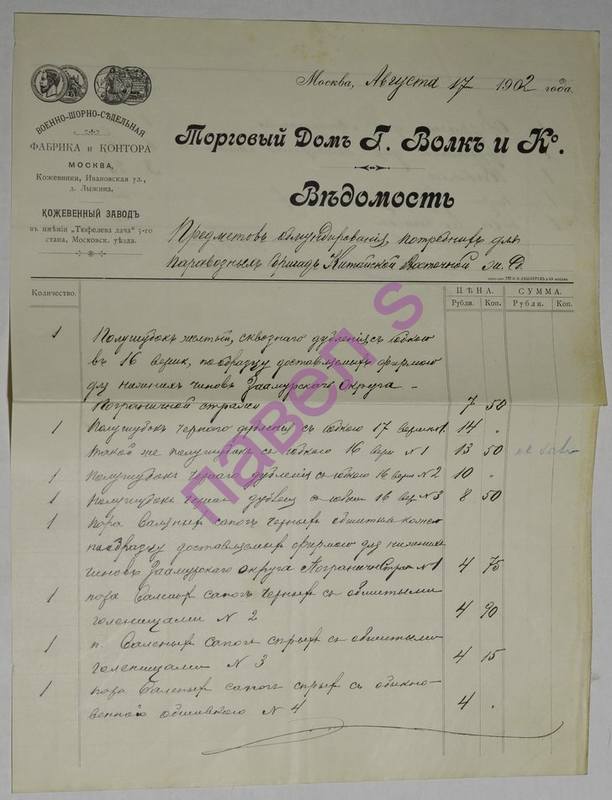 Москва, Августа 17 1902 года.
ВОЕННО-ШОРНО-СѢДЕЛЬНАЯ
ФАБРИКА и КОНТОРА
МОСКВА,
Кожевники, Ивановская ул.,
д. Лыжина.
КОЖЕВЕННЫЙ ЗАВОДЪ
въ имѣніи "Тюфелева дача" 3-го
стана, Московск. уѣзда.
Торговый Домъ Г. Волкъ и Ко.
Вѣдомость
Предметовъ обмундированія, потребныхъ для
паравозныхъ бригадъ Китайской Восточной ж. д.
Количество.
ЦѢНА.
СУММА.
Рубли.
Коп.
Рубли.
Коп.
1 Полушубокъ желтый, сквознаго дубленія, съ юбкою
въ 16 верш, по образцу доставляемыхъ фирмою
для нижнихъ чиновъ Заамурского Округа
Пограничной стражи 7 50
1 Полушубокъ черного дубленія съ юбкою 17 верш 14 .
такой же полушубокъ съ юбкою 16 верш N 1 13 50
1 Полушубокъ чернаго дубленія съ юбкою 16 верш N 2 10 .
1 Полушубокъ черн дублен съ юбкою 16 вер N 3 8 50
1 пара Валяныхъ сапогъ черные обшитые кожею
по образцу доставляемые фирмою для нижнихъ
чиновъ Заамурского округа Погранич Страж N 1 4 75
1 пара сапогъ черные съ обшитыми
голенищами N 2 4 90
1 п. Валеные сапоги сѣрые съ обшитыми
голенищами N 3 4 15
1 пара Валеные сапоги сѣрые съ обикно-
венною обшивкою N 4 4 .
павел s